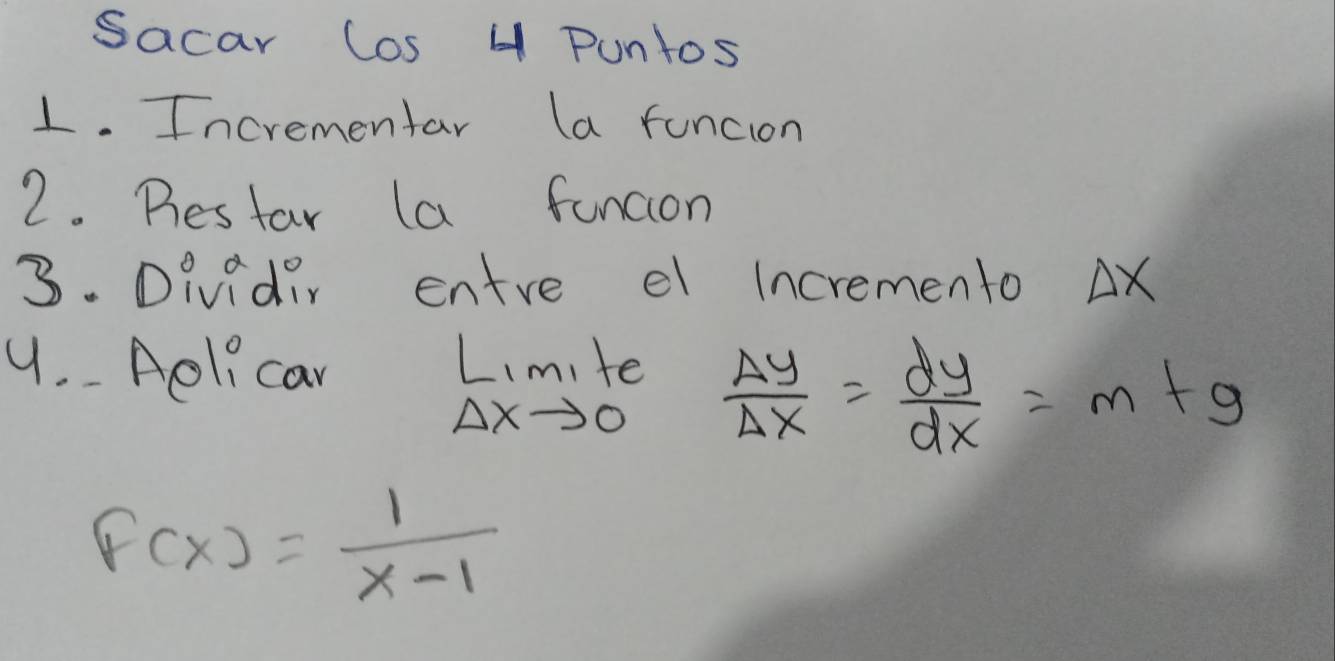 Sacar los 4 Puntos
1. Incrementar la funcion
2. Restar la funcion
3. Dividir entre el Incremento ΔX
4.- Aplicar Limite ΔX→0 Δy/ΔX = dy/dx = m tg
F(x) = 1/(x-1)